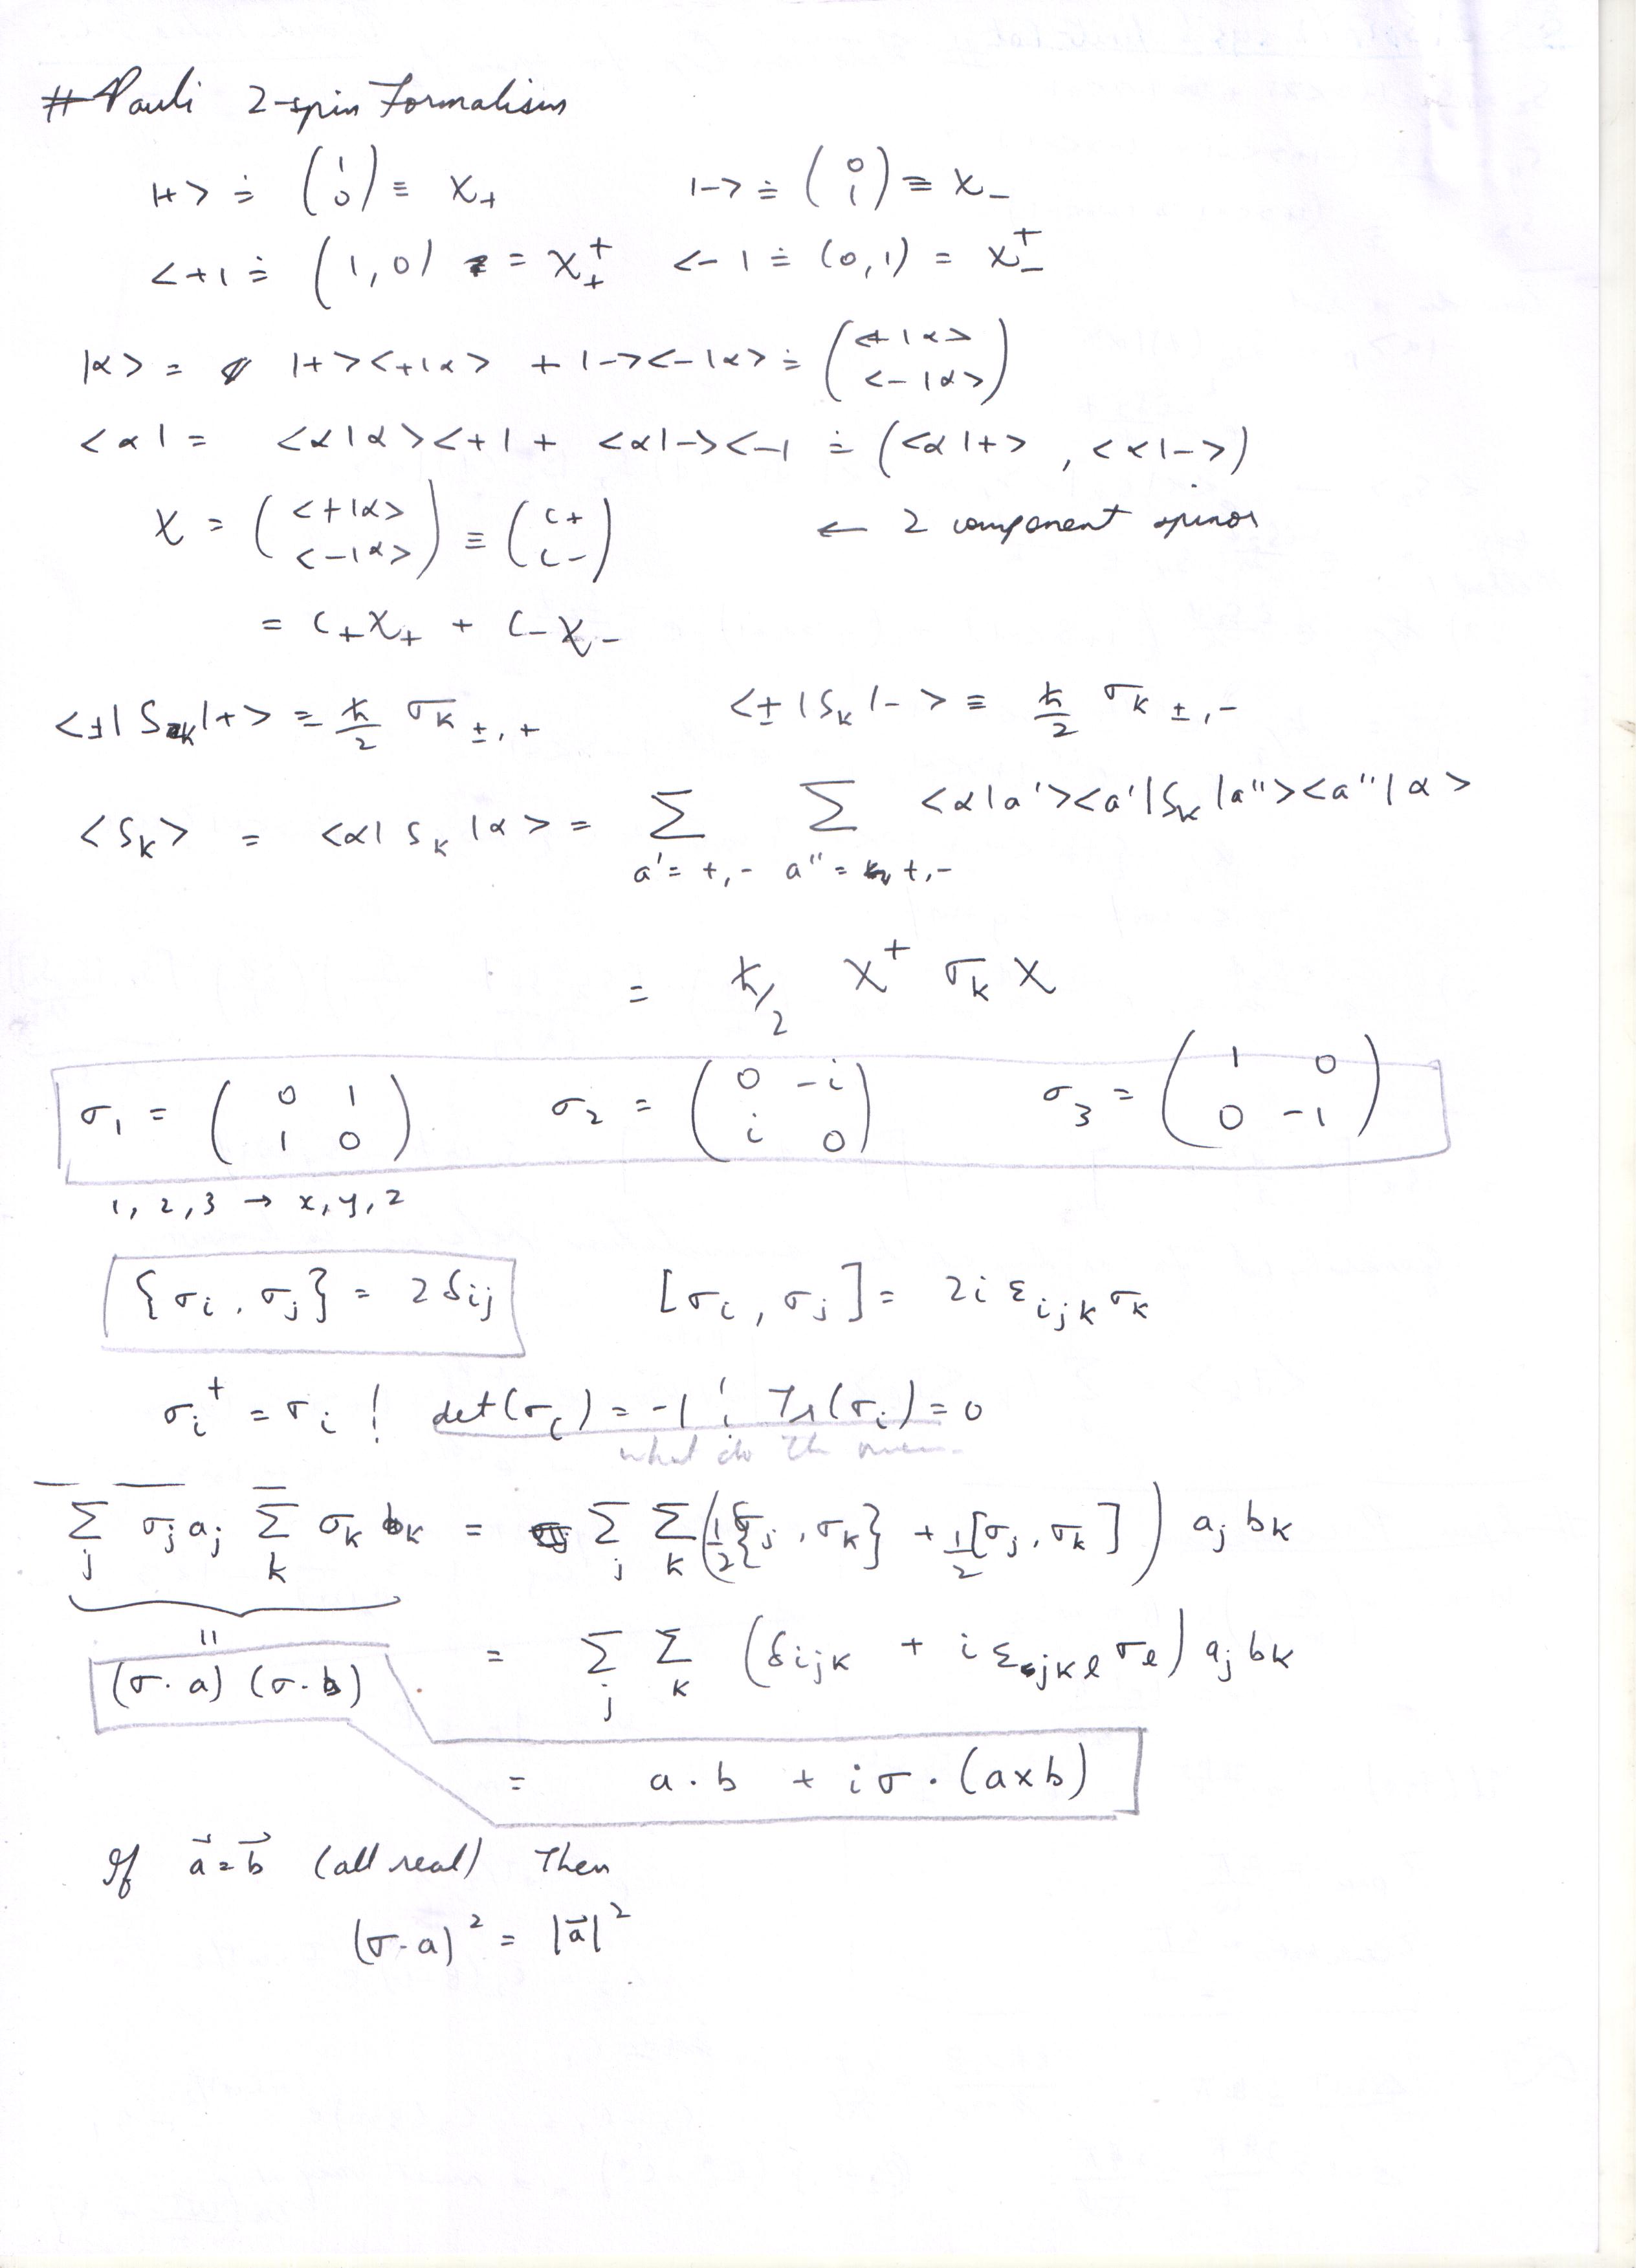 # Pauli 2-spin Formalism
|+> ≐ (1 0) ≡ χ₊   |-> ≐ (0 1) ≡ χ₋
<+| ≐ (1, 0) = χ₊⁺   <-| ≐ (0, 1) = χ₋⁺
|α> = |+><+|α> + |-><-|α> ≐ (<+|α> <-|α>)
<α| = <α|α><+| + <α|-><-| ≐ (<α|+>, <α|->)
χ = (<+|α> <-|α>) ≡ (c+ c-)   ← 2 component spinor
= c₊χ₊ + c₋χ₋
<±|S_k|+> = ħ/2 σ_k ±,+   <±|S_k|-> ≡ ħ/2 σ_k ±,-
<S_k> = <α|S_k|α> = Σ_{a'=+,-} Σ_{a''=+,-} <α|a'><a'|S_k|a''><a''|α>
= ħ/2 χ⁺ σ_k χ
σ₁ = (0 1 1 0)   σ₂ = (0 -i i 0)   σ₃ = (1 0 0 -1)
1, 2, 3 → x, y, z
{σ_i, σ_j} = 2δ_ij   [σ_i, σ_j] = 2i ε_ijk σ_k
σ_i⁺ = σ_i ! det(σ_i) = -1 ; Tr(σ_i) = 0
what do the
Σ_j σ_j a_j Σ_k σ_k b_k = Σ_j Σ_k (1/2{σ_j, σ_k} + 1/2[σ_j, σ_k]) a_j b_k
= Σ_j Σ_k (δ_ijk + i ε_jkl σ_l) a_j b_k
(σ·a)(σ·b)
= a·b + iσ·(a×b)
If a⃗ = b⃗ (all real) Then
(σ·a)² = |a⃗|²